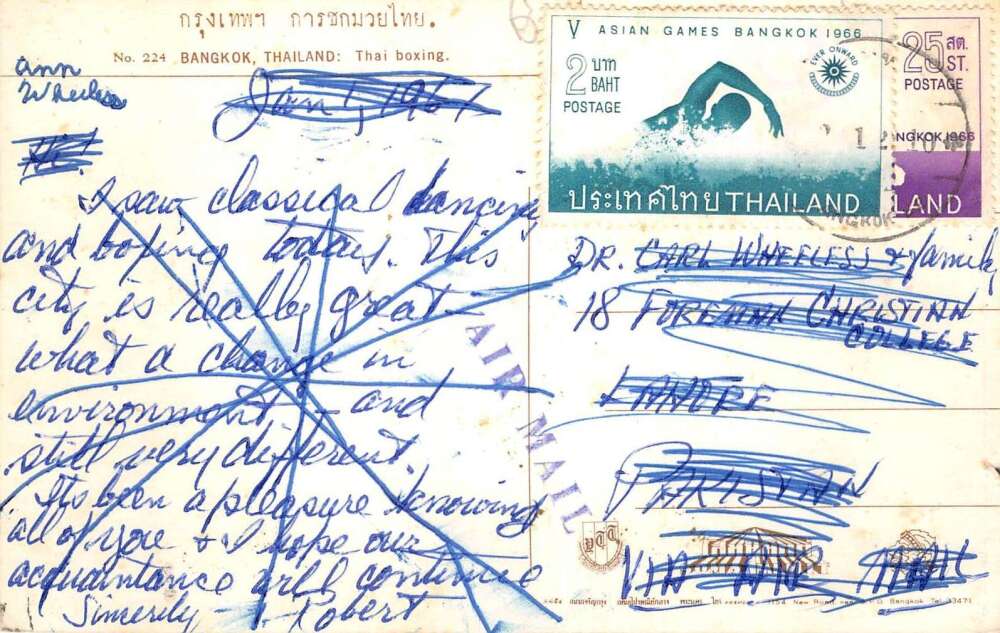 กรุงเทพฯ การชกมวยไทย.
No. 224 BANGKOK, THAILAND: Thai boxing.
ann
Wheeless
Jan 1, 1967
Hi!
I saw classical dancing
and boxing today. This
city is really great -
what a change in
environment - and
still very different.
Its been a pleasure knowing
all of you & I hope our
acquaintance will continue
Sincerely - Robert
V ASIAN GAMES BANGKOK 1966
EVER ONWARD
2 บาท
BAHT
POSTAGE
ประเทศไทย THAILAND
25 สต.
ST.
POSTAGE
NGKOK 1966
LAND
AIR MAIL
DR. CARL WHEELESS & family
18 FOREMAN CHRISTIAN
COLLEGE
LAHORE
PAKISTAN
VIA AIR MAIL
New Road Bangkok Tel. 33471